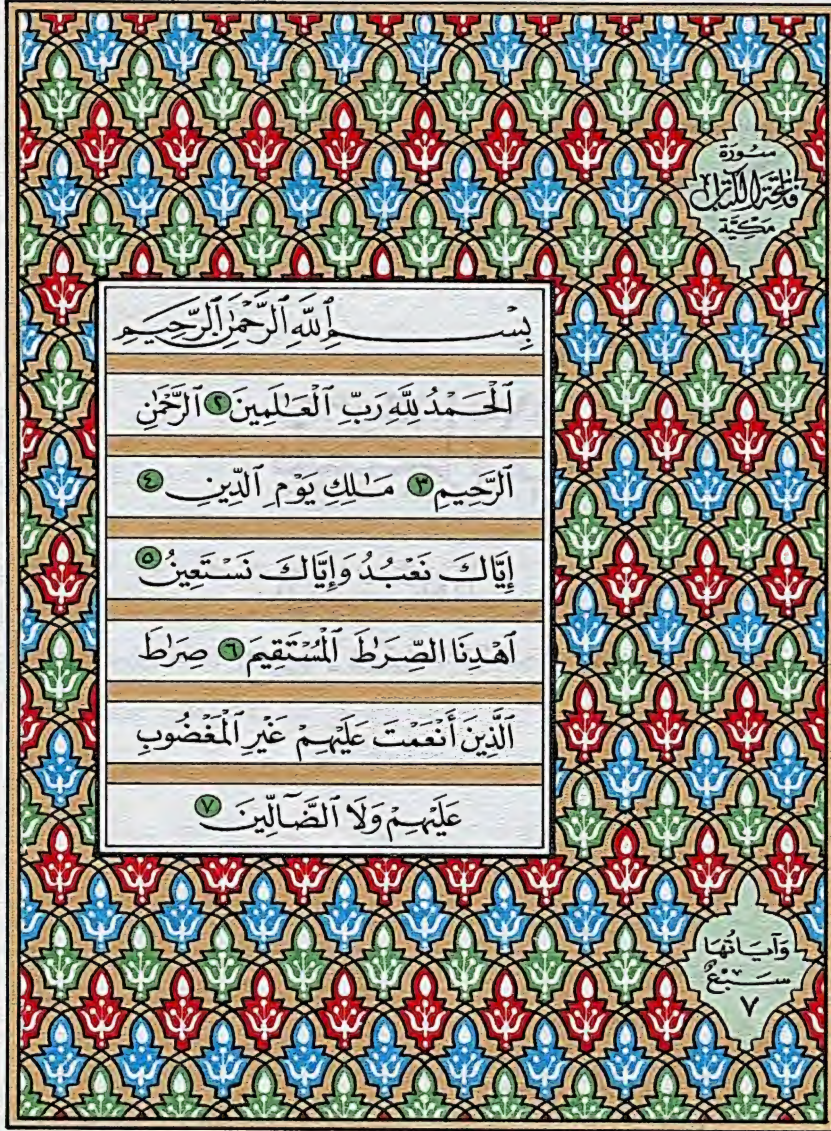 سورة
فاتحة الكتاب
مكية
بِسْمِ ٱللَّهِ ٱلرَّحْمَٰنِ ٱلرَّحِيمِ
ٱلْحَمْدُ لِلَّهِ رَبِّ ٱلْعَٰلَمِينَ ٢ ٱلرَّحْمَٰنِ
ٱلرَّحِيمِ ٣ مَٰلِكِ يَوْمِ ٱلدِّينِ ٤
إِيَّاكَ نَعْبُدُ وَإِيَّاكَ نَسْتَعِينُ ٥
ٱهْدِنَا ٱلصِّرَٰطَ ٱلْمُسْتَقِيمَ ٦ صِرَٰطَ
ٱلَّذِينَ أَنْعَمْتَ عَلَيْهِمْ غَيْرِ ٱلْمَغْضُوبِ
عَلَيْهِمْ وَلَا ٱلضَّآلِّينَ ٧
وَآيَاتُهَا
سَبْعٌ
٧